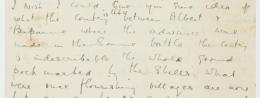 I wish I could give you some idea of
what the country is like between Albert &
Bapaume where the advance was
made in the Somme battle the country
is indescribable the whole ground
pock marked by the shells, what
were once flourishing villages are now